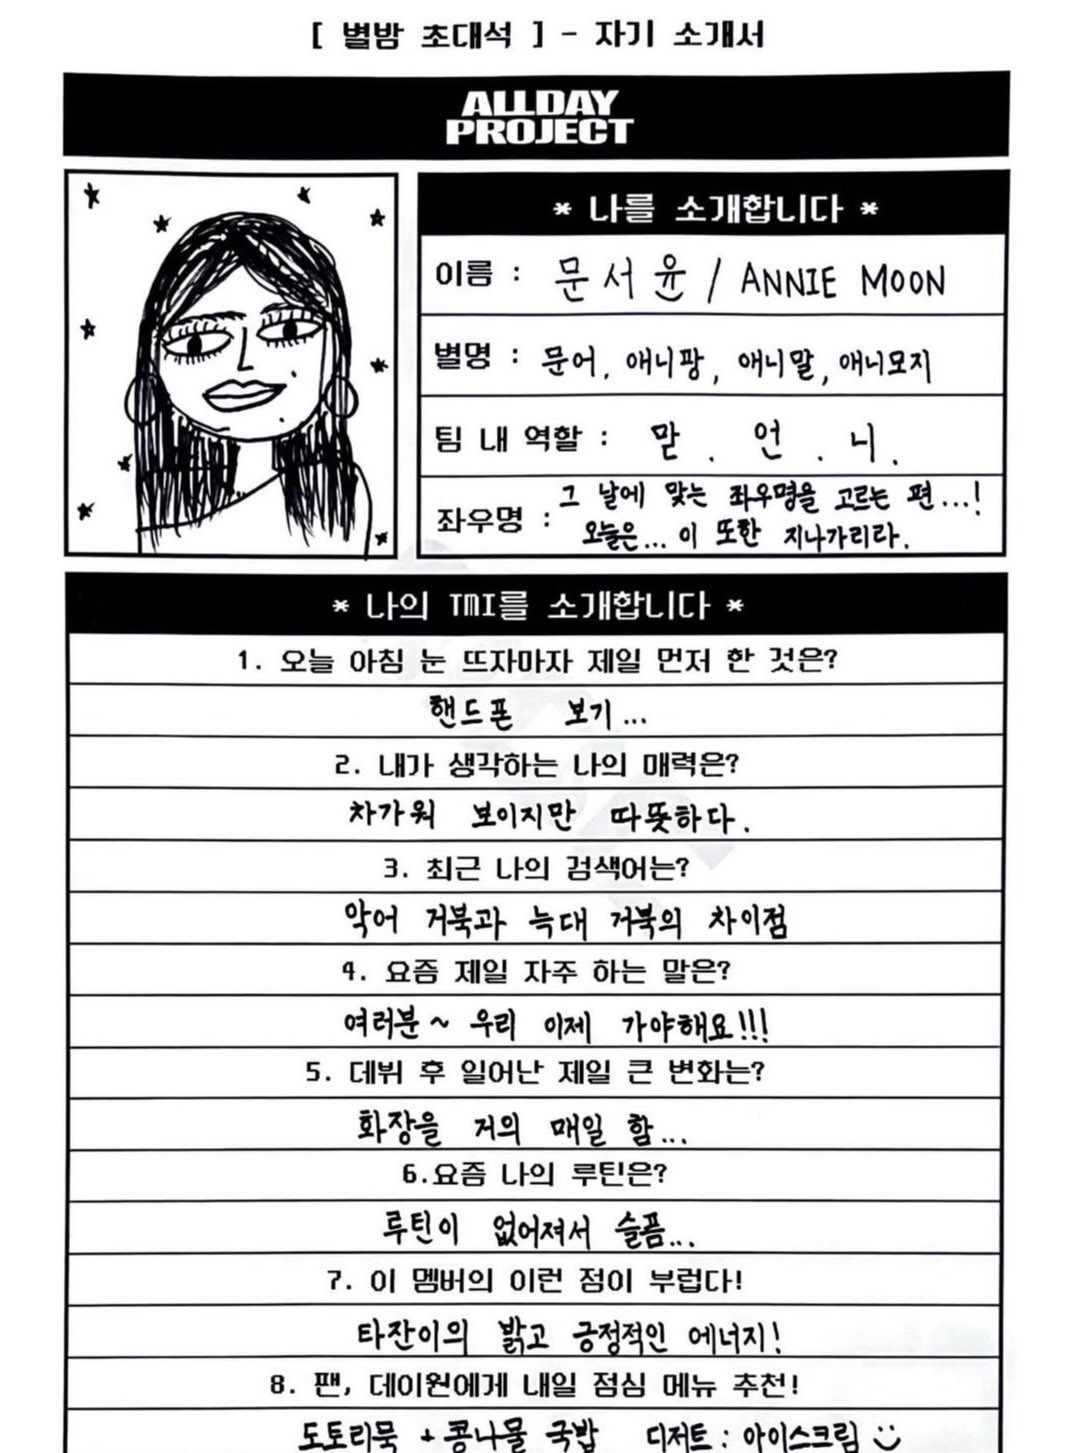 [ 별밤 초대석 ] - 자기 소개서
ALLDAY
PROJECT
* 나를 소개합니다 *
이름 : 문서윤 / ANNIE MOON
별명 : 문어, 애니팡, 애니말, 애니모지
팀 내 역할 : 맏 . 언 . 니 .
좌우명 : 그 날에 맞는 좌우명을 고르는 편...!
오늘은... 이 또한 지나가리라.
* 나의 TMI를 소개합니다 *
1. 오늘 아침 눈 뜨자마자 제일 먼저 한 것은?
핸드폰 보기...
2. 내가 생각하는 나의 매력은?
차가워 보이지만 따뜻하다.
3. 최근 나의 검색어는?
악어 거북과 늑대 거북의 차이점
4. 요즘 제일 자주 하는 말은?
여러분~ 우리 이제 가야해요!!!
5. 데뷔 후 일어난 제일 큰 변화는?
화장을 거의 매일 함...
6.요즘 나의 루틴은?
루틴이 없어져서 슬픔...
7. 이 멤버의 이런 점이 부럽다!
타잔이의 밝고 긍정적인 에너지!
8. 팬, 데이원에게 내일 점심 메뉴 추천!
도토리묵 + 콩나물 국밥 디저트 : 아이스크림 :)